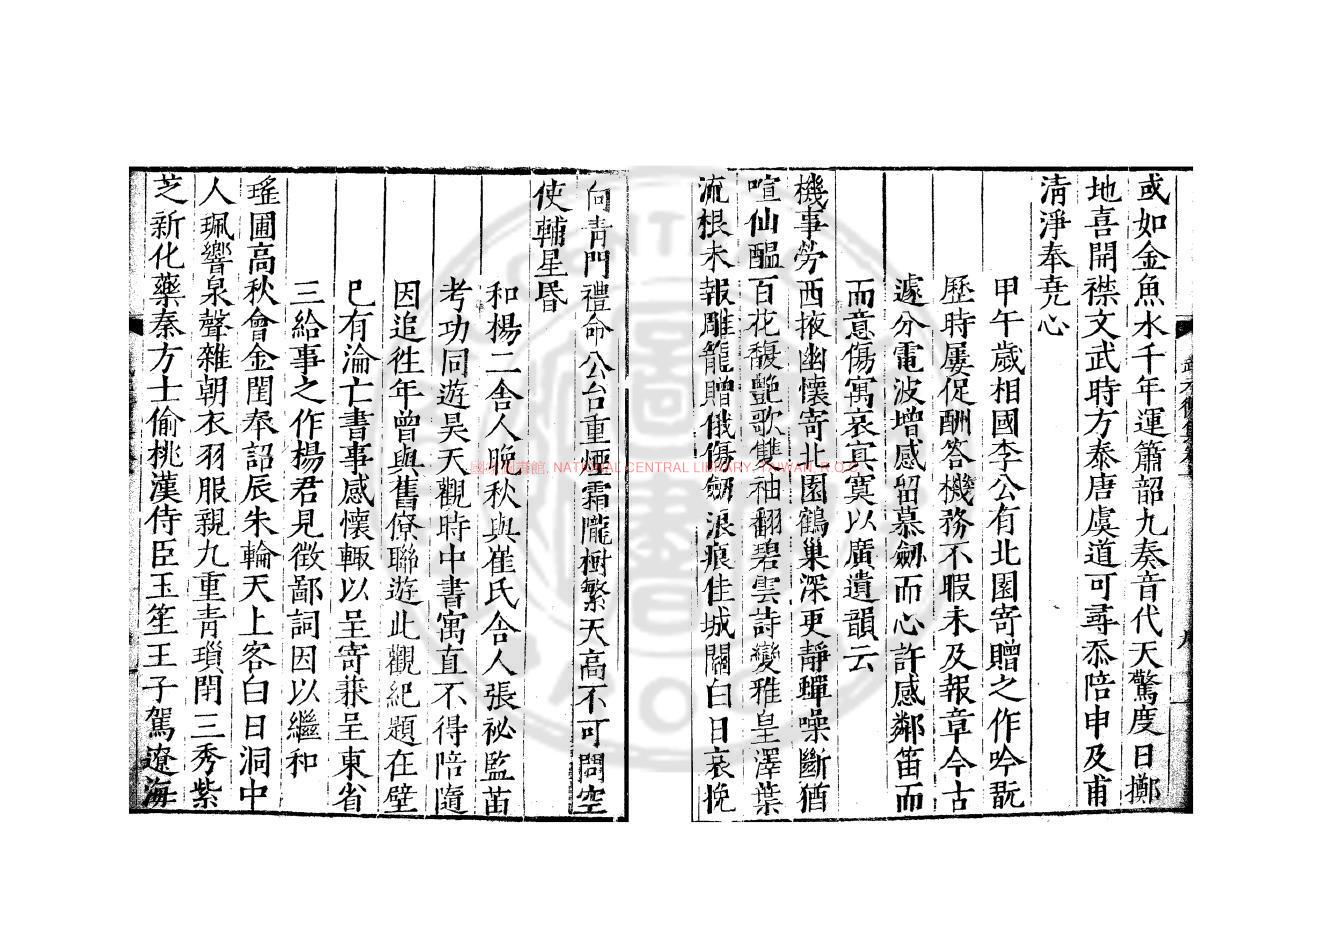 或如金魚水千年運簫韶九奏音代天驚度日擲
地喜開襟文武時方泰唐虞道可尋忝陪申及甫
清淨奉堯心
甲午歲相國李公有北園寄贈之作吟翫
歷時屢促酬答機務不暇未及報章今古
遽分電波增感留慕劒而心許感鄰笛而
而意傷寓哀冥寞以廣遺韻云
機事勞西掖幽懷寄北園鶴巢深更靜蟬噪斷猶
喧仙醞百花馥艷歌雙袖翻碧雲詩變雅皇澤葉
流根未報雕籠贈俄傷劒淚痕佳城關白日哀挽
向青門禮命公台重煙霜隴樹繁天高不可問空
使輔星昏
和楊二舍人晚秋與崔氏舍人張祕監苗
考功同遊昊天觀時中書寓直不得陪隨
因追徃年曾與舊僚聯遊此觀紀題在壁
已有淪亡書事感懷輙以呈寄兼呈東省
三給事之作楊君見徵鄙詞因以繼和
瑤圃高秋會金閨奉詔辰朱輪天上客白日洞中
人珮響泉聲雜朝衣羽服親九重青瑣閉三秀紫
芝新化藥秦方士偷桃漢侍臣玉笙王子駕遼海
國家圖書館, NATIONAL CENTRAL LIBRARY, TAIWAN, R.O.C.